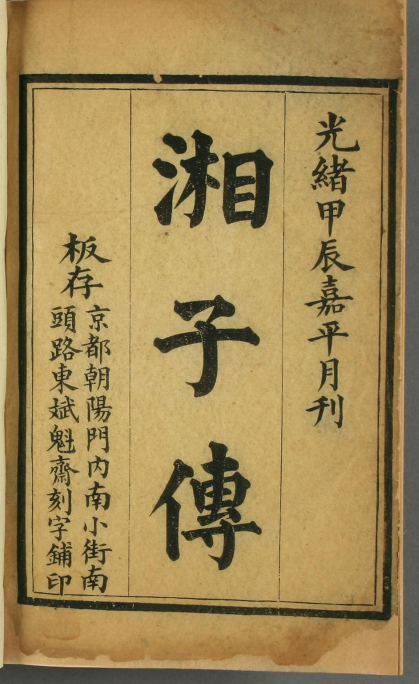 光緒甲辰嘉平月刊
湘子傳
板存
京都朝陽門內南小街南
頭路東斌魁齋刻字鋪印